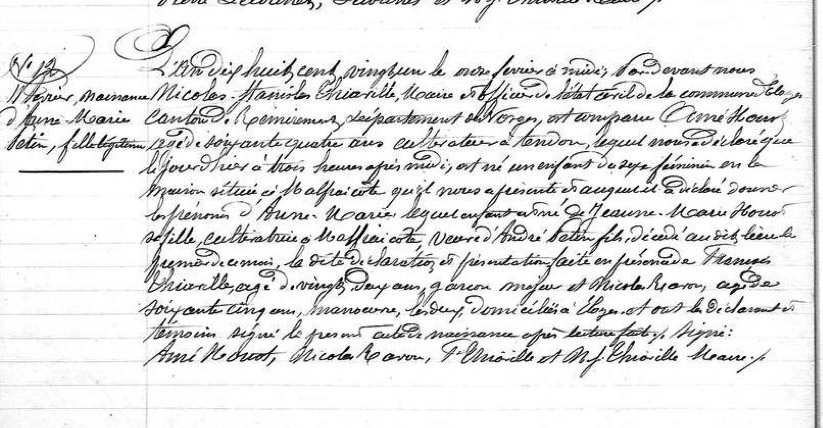 et N. J. Thiaville Maire./.
N.° 12
11 février, naissance
d'Anne Marie
fille légitime
L'An dix huit cent vingt un le onze fevrier à midi, Pardevant nous
Nicolas Stanislas Thiaville, Maire et officier de l'état civil de la commune d'Eloyes
canton de Remiremont, département des Vosges, est comparu Amé Houot
agé de soixante quatre ans cultivateur à tendon, lequel nous a déclaré que
le jour d'hier à trois heures après midi, est né un enfant du sexe féminin en la
maison située à Malpaicôte qu'il nous a présenté et auquel il a déclaré donner
les prénoms d'Anne-Marie, lequel enfant est né de Jeanne-Marie Houot
sa fille, cultivatrice à Malpaicôte, veuve d'André fils, décédé audit lieu le
premier de ce mois, la dite déclaration et présentation faite en présence de François
Thiaville, agé de vingt deux ans, garçon majeur et Nicolas Ravon, agé de
soixante cinq ans, manoeuvre, les deux domiciliés à Eloyes et ont les déclarant et
témoins signé le présent acte de naissance après lecture faite ./. Signé:
Amé Houot, Nicolas Ravon, F. Thiaville et N. J. Thiaville Maire./.